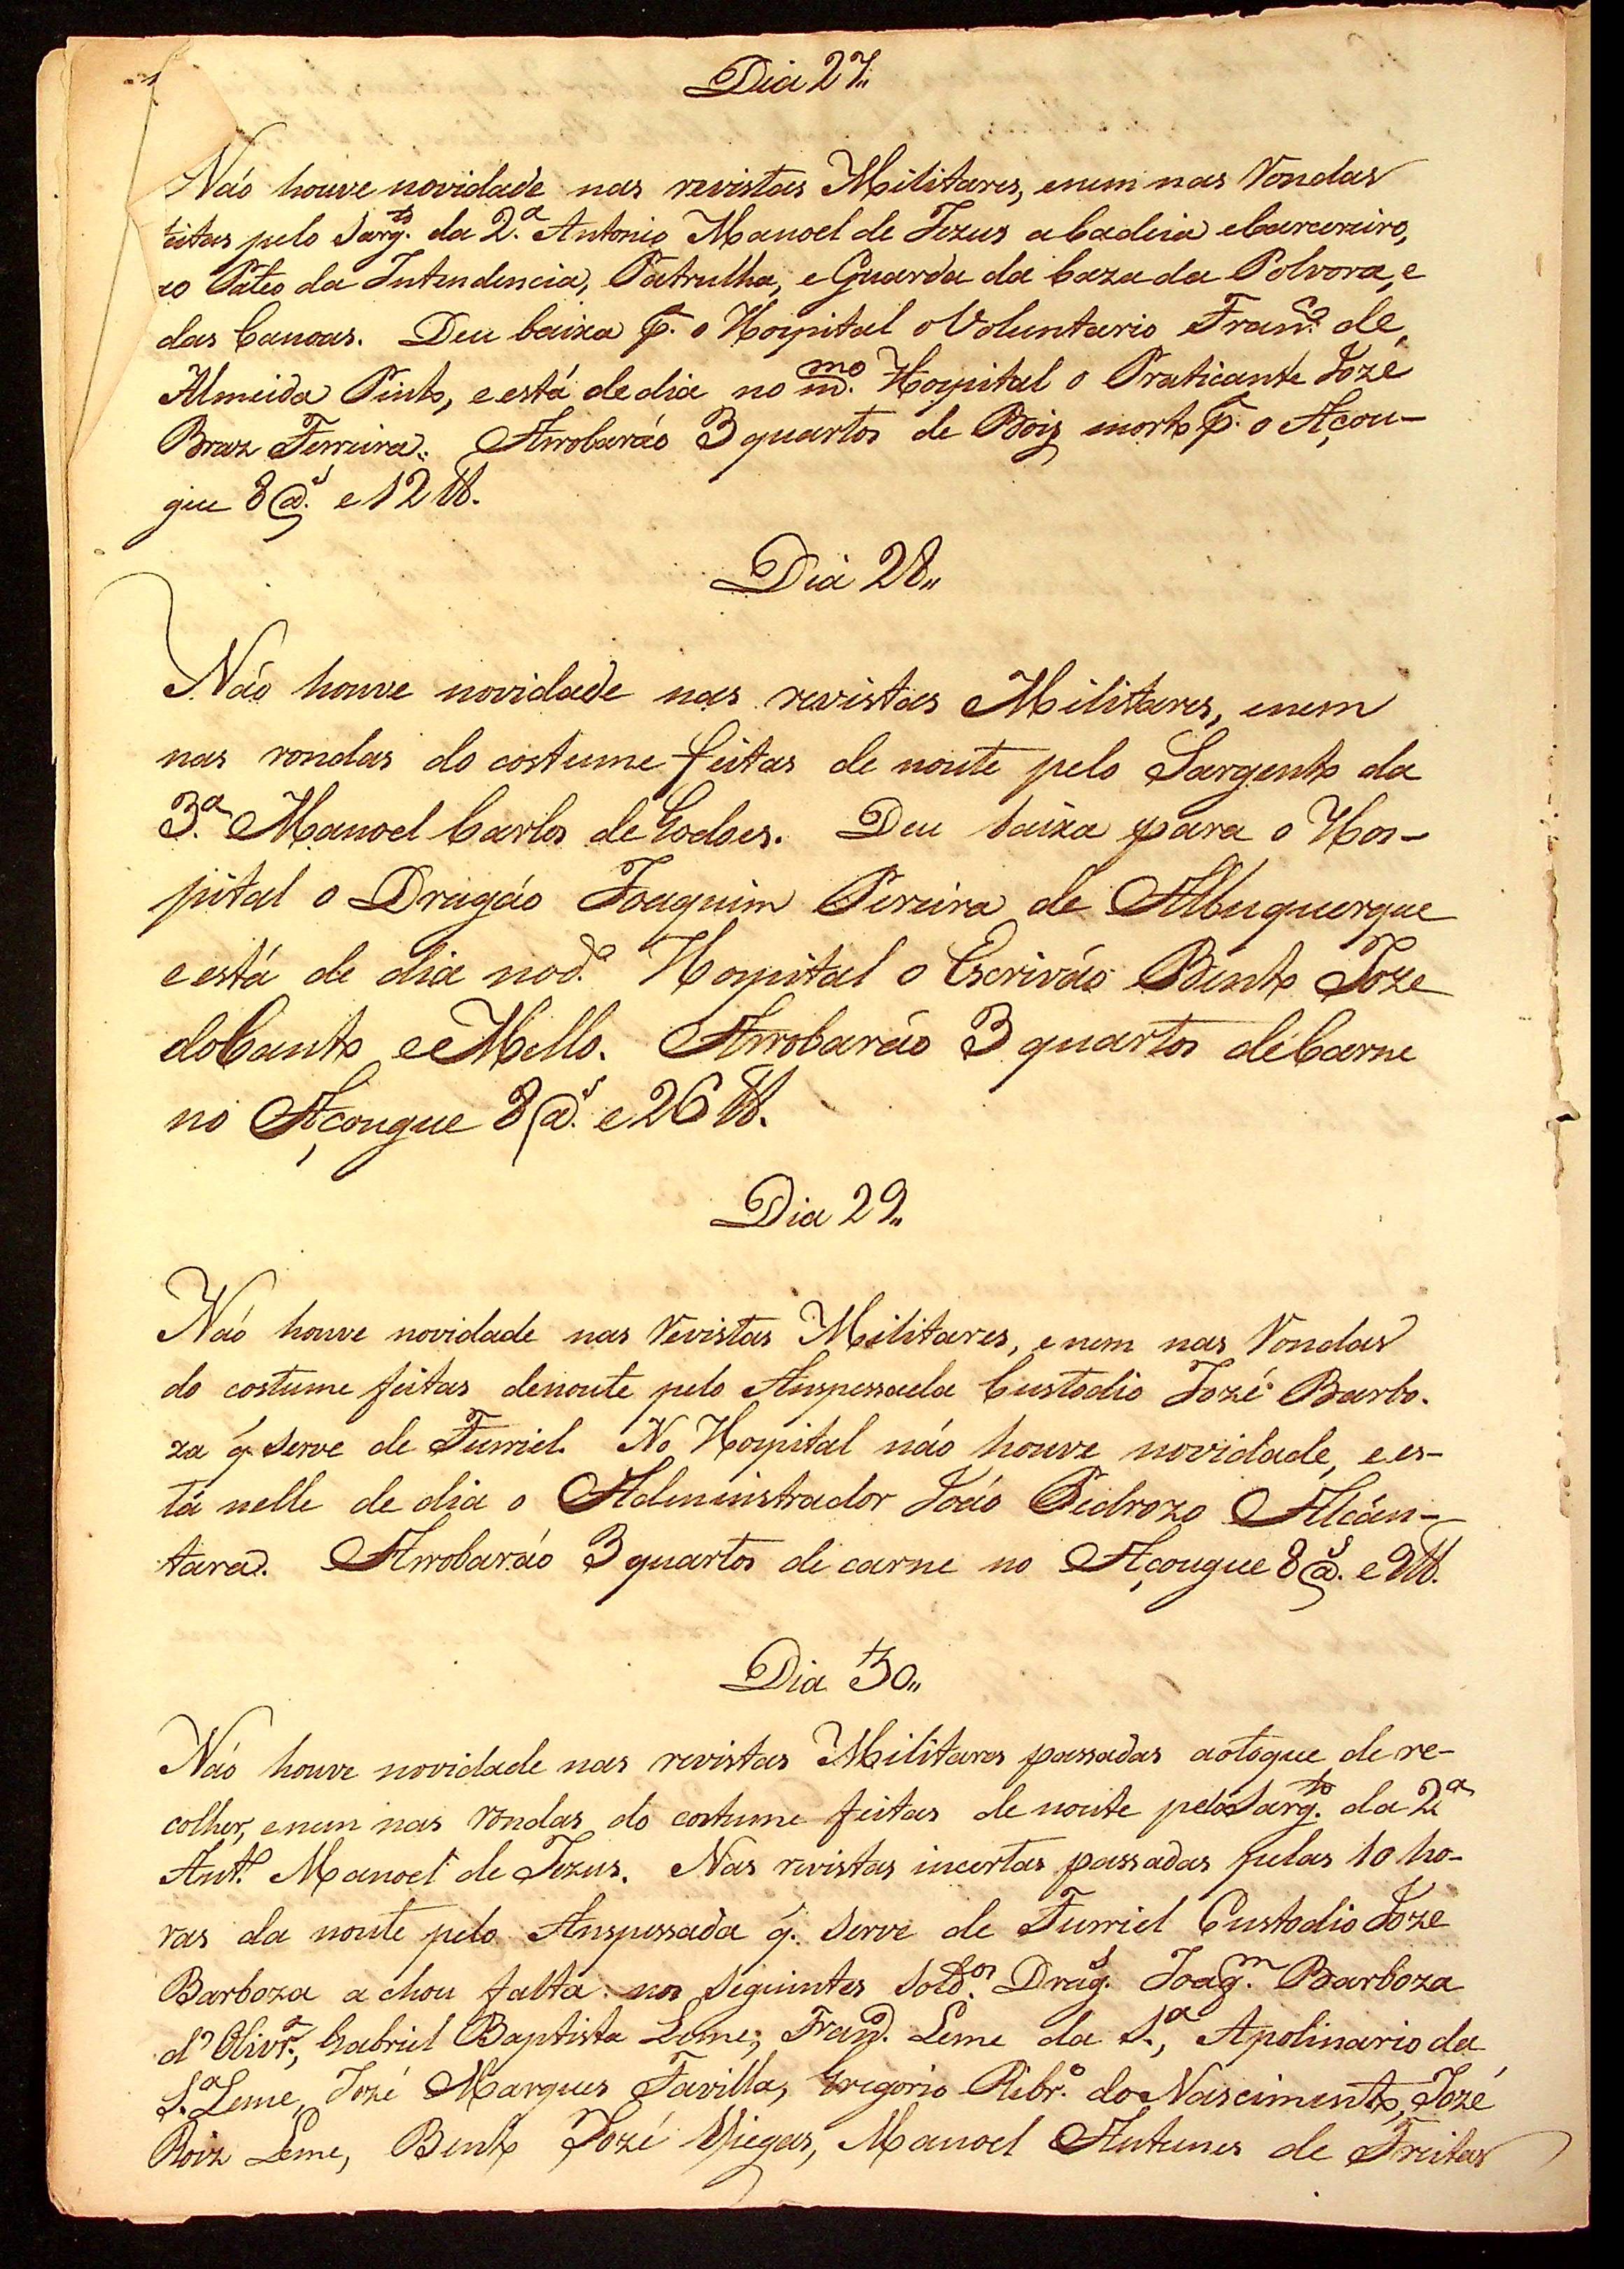 Dia 27"
Não houve novidade nas revistas Militares, enem nas Rondas
feitas pelo Sarg.to da 2.a Antonio Manoel de Jezus a Cadeia eCarcereiro,
ao Páteo da Intendencia, Patrulha, e Guarda da Caza da Polvora, e
das Canoas. Deu baixa p.a o Hospital o Voluntario Fran.co de
Almeida Pinto, e está de dia no m.mo Hospital o Praticante Joze
Braz Ferreira. Arrobarão 3 quartos de Boiz morto p.a o Açou-
gue 8 @.s e 12 ℔.
Dia 28"
Não houve novidade nas revistas Militares, enem
nas rondas do costume feitas de noute pelo Sargento da
3.a Manoel Carlos de Godoes. Deu baixa para o Hos-
pital o Dragão Joaquim Pereira de Albuquerque
e está de dia no d.o Hospital o Escrivão Bento Joze
doCanto e Mello. Arrobarão 3 quartos deCarne
no Açougue 8 @.s e 26 ℔.
Dia 29"
Não houve novidade nas Revistas Militares, e nem nas Rondas
do costume feitas denoute pelo Anspessada Custodio Jozé Barbo-
za q. serve de Furriel. No Hospital não houve novidade, e es-
tá nelle de dia o Administrador João Pedrozo Alcân-
tara. Arrobarão 3 quartos de carne no Açougue 8 @.s e 9 ℔.
Dia 30"
Não houve novidade nas revistas Militares passadas aotoque de re-
colher, enem nas rondas do costume feitas de noute pelo Sarg.to da 2.a
Ant.o Manoel de Jezus. Nas revistas incertas passadas pelas 10 ho-
ras da noute pelo Anspessada q. serve de Furriel Custodio Joze
Barboza achou falta nos seguintes Sold.os Drag.s Joaq.m Barboza
d'Oliv.ra, Gabriel Baptista Leme, Fran.co Leme da S.a, Apolinario da
S.a Leme, Jozé Marques Favilla, Gregorio Ribr.o do Nascimento, Jozé
Roiz Leme, Bento Jozé Viegas, Manoel Antunes de Freitas